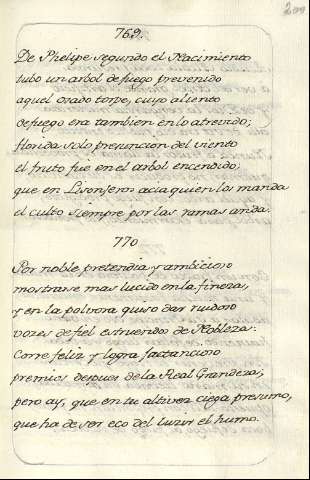 200
769.
De Phelipe segundo el Nacimiento
tubo un arbol de fuego prevenido
aquel osado torpe, cuyo aliento
de fuego era tambien en lo atrevido;
florida solo presuncion del viento
el fruto fue en el arbol encendido;
que en Lisonjeros acia quien los manda
el culto siempre por las ramas anda.
770
Por noble, pretendia, y ambicioso
mostrarse mas lucido en la fineza,
y en la polvora quiso dar ruidoso
vozes de fiel estruendos de Nobleza:
Corre feliz y logra jactancioso
premios despues de la Real Grandeza;
pero ay, que en tu altivez ciega presumo,
que ha de ser eco del luzir el humo.